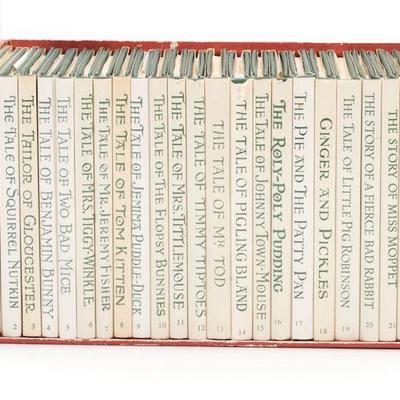 The Tale of Squirrel Nutkin 2
The Tailor of Gloucester 3
The Tale of Benjamin Bunny 4
The Tale of Two Bad Mice 5
The Tale of Mrs. Tiggy-Winkle. 6
The Tale of Mr. Jeremy Fisher 7
The Tale of Tom Kitten 8
The Tale of Jemima Puddle-Duck 9
The Tale of The Flopsy Bunnies 10
The Tale of Mrs. Tittlemouse 11
The Tale of Timmy Tiptoes 12
The Tale of Mr. Tod 13
The Tale of Pigling Bland 14
The Tale of Johnny Town-Mouse
The Roly-Poly Pudding 16
The Pie and The Patty Pan 17
Ginger and Pickles 18
The Tale of Little Pig Robinson 19
The Story of a Fierce Bad Rabbit 20
The Story of Miss Moppet 21